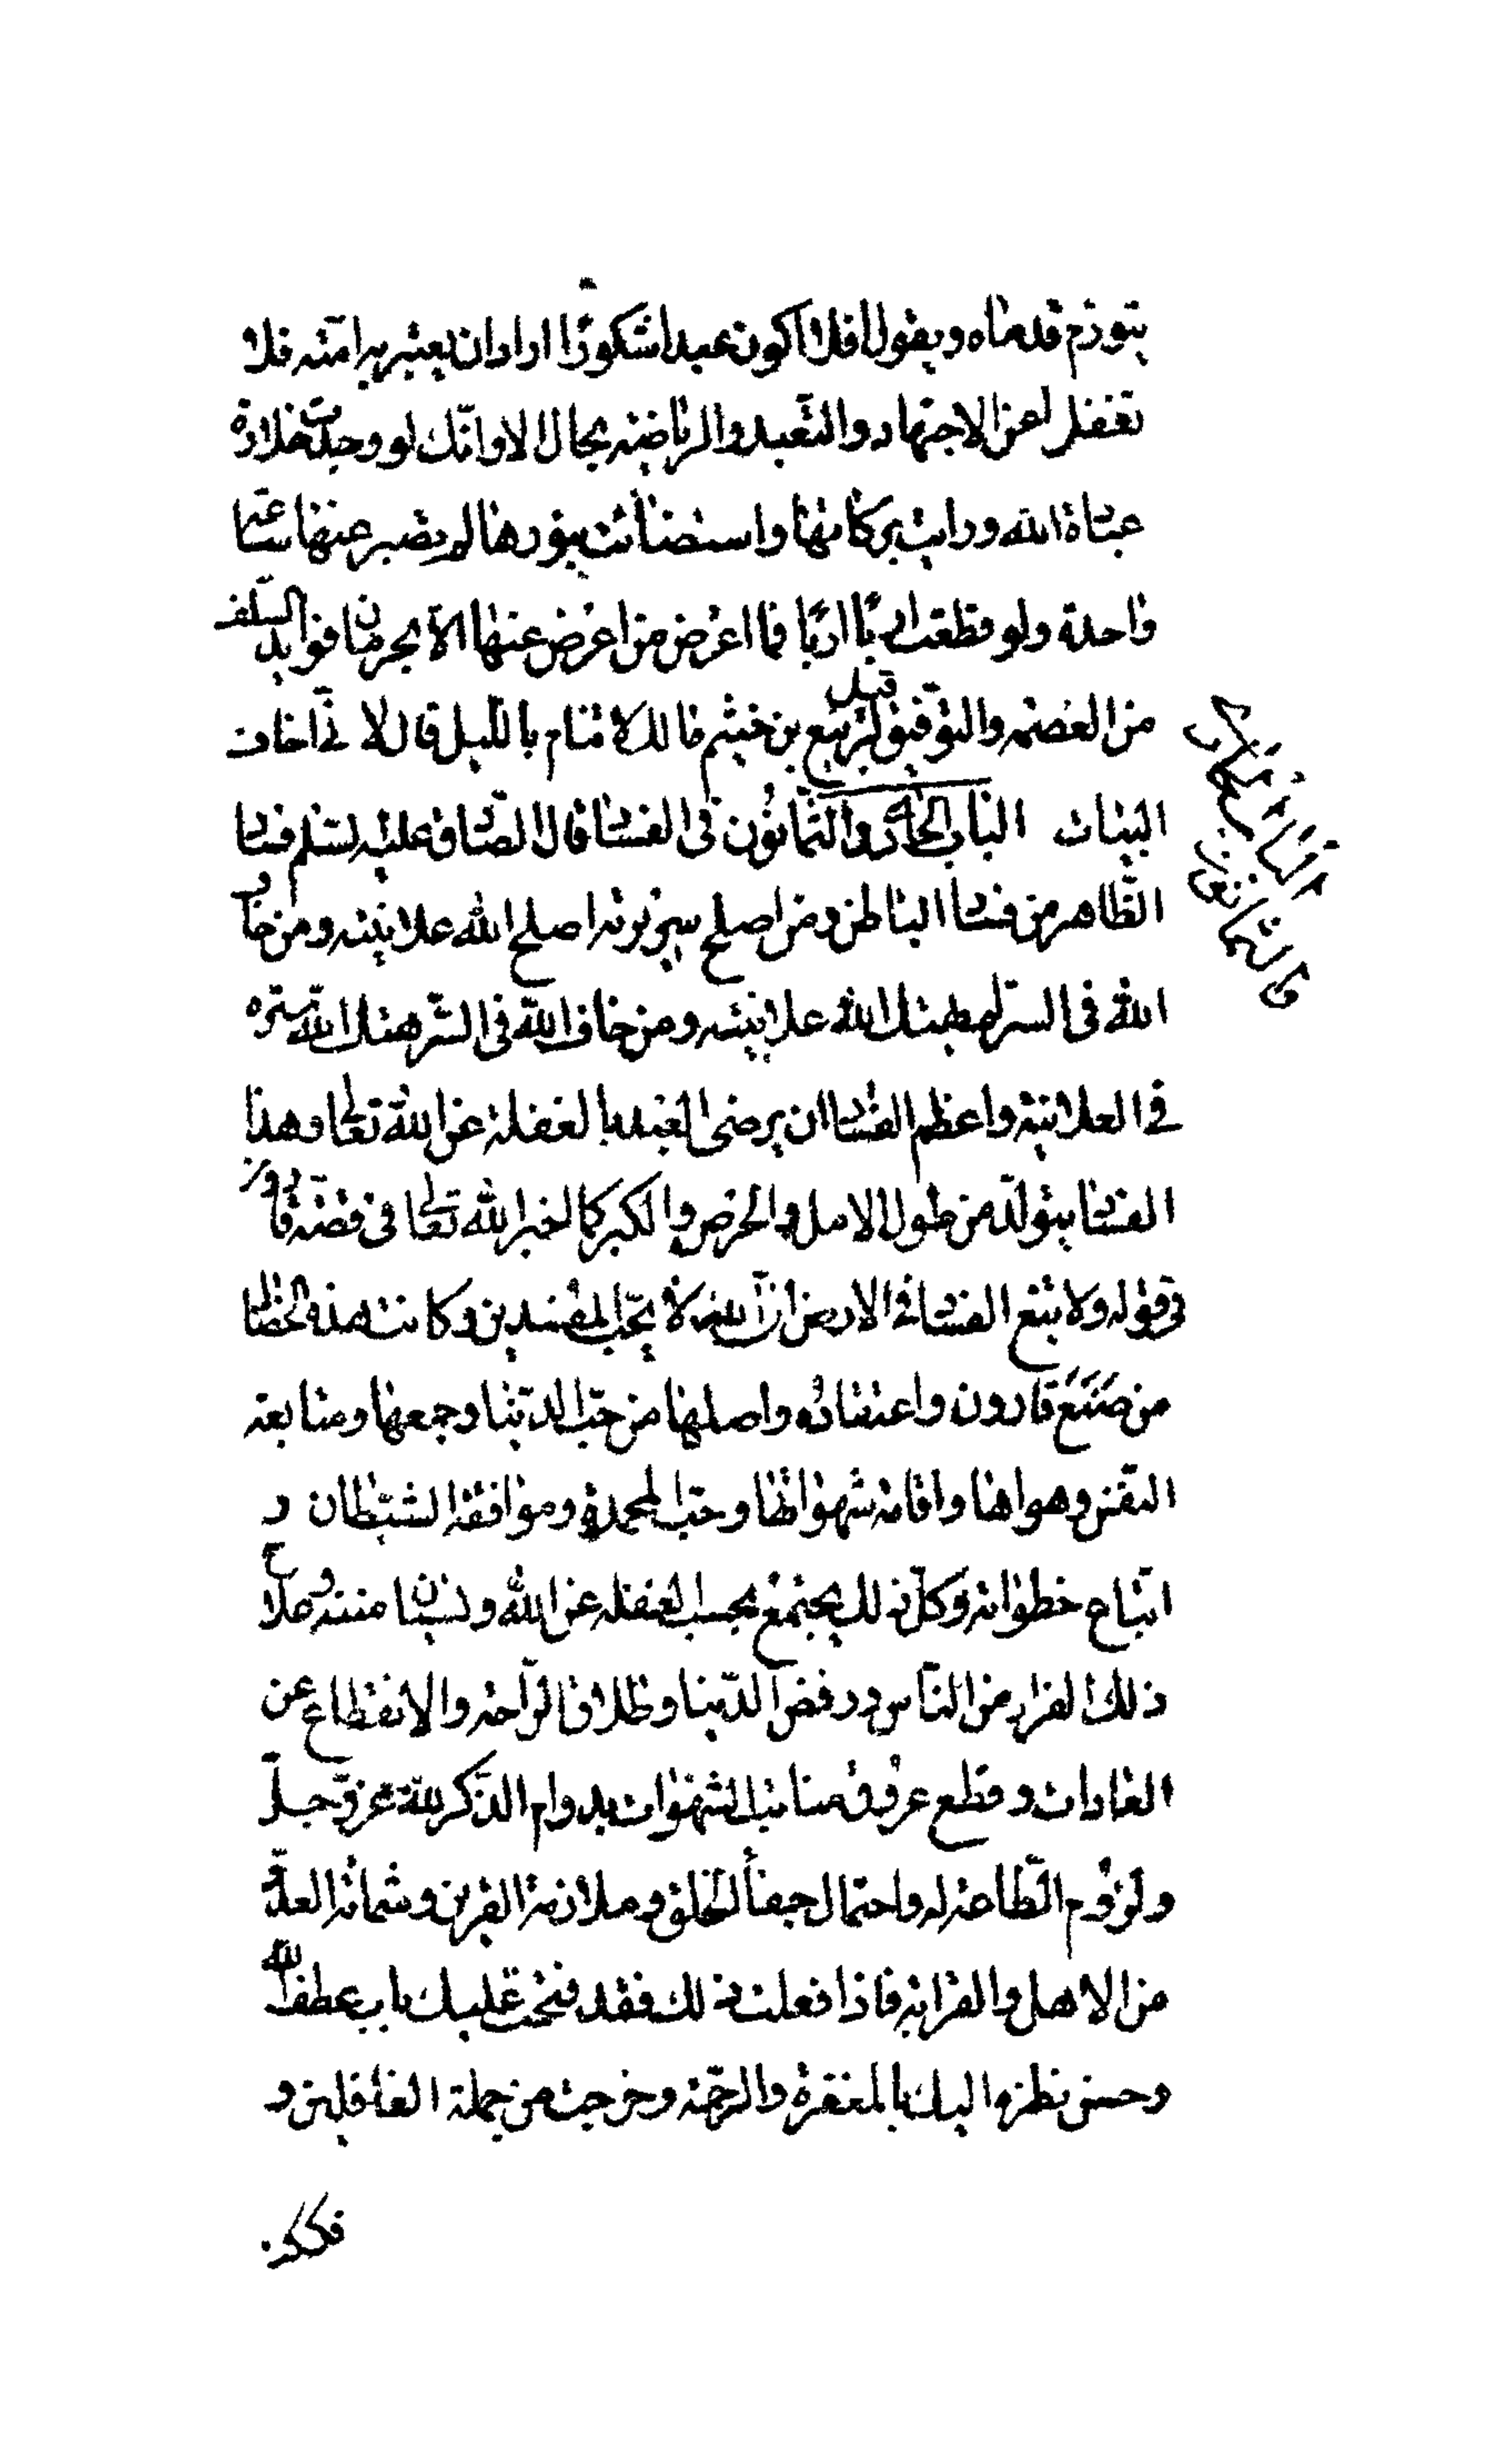 يتورّم قدماه ويقول افلا اكون عبدا شكورًا اراد ان يعتبر به امّته فلا
تغفلن عن الاجتهاد والتّعبد والرّياضة بحال الا وانّك لو وجدت حلاوة
عبادة الله ورايت بركاتها واستضائت بنورها لم تصبر عنها ساعة
واحدة ولو قطعت اربًا اربًا فما اعرض من اعرض عنها الّا بحرمان فوايد السلف
من العصمة والتوفيق قيل لربيع بن خيثم مالك لا تنام بالليل قال لانّى اخاف
البيات الباب الحادى والثمانون فى الفساد قال الصّادق عليه السلام فساد
الظّاهر من فساد الباطن ومن اصلح سريرته اصلح الله علانيته ومن خان
الله فى السرّ لم يهتك الله علانيته ومن خاف الله فى السّر هتك الله ستره
فى العلانية واعظم الفساد ان يرضى العبد بالغفلة عن الله تعالى وهذا
الفساد يتولّد من طول الامل والحرص والكبر كما اخبر الله تعالى فى قصّة قارون
فى قوله ولا تبغ الفساد فى الارض انّ الله لا يحبّ المفسدين وكانت هذه الخصال
من صنع قارون واعتقاده واصلها من حبّ الدّنيا وجمعها ومتابعة
النّفس وهواها واقامة شهواتها وحبّ المحمدة وموافقة الشيطان و
اتّباع خطواته وكلّ ذلك يجتمع بحسب الغفلة عن الله ونسيان مننه وعلاج
ذلك الفرار من النّاس ورفض الدّنيا وطلاق الرّاحة والانقطاع عن
العادات وقطع عروق منابت الشهوات بدوام الذّكر لله عزّ وجلّ
ولزوم الطّاعة له واحتمال جفاء الخلق وملازمة القرين وشماتة العدوّ
من الاهل والقرابة فاذا فعلت ذلك فقد فتحت عليك باب عطف الله
وحسن نظره اليك بالمغفرة والرّحمة وخرجت من جملة الغافلين و
فككت